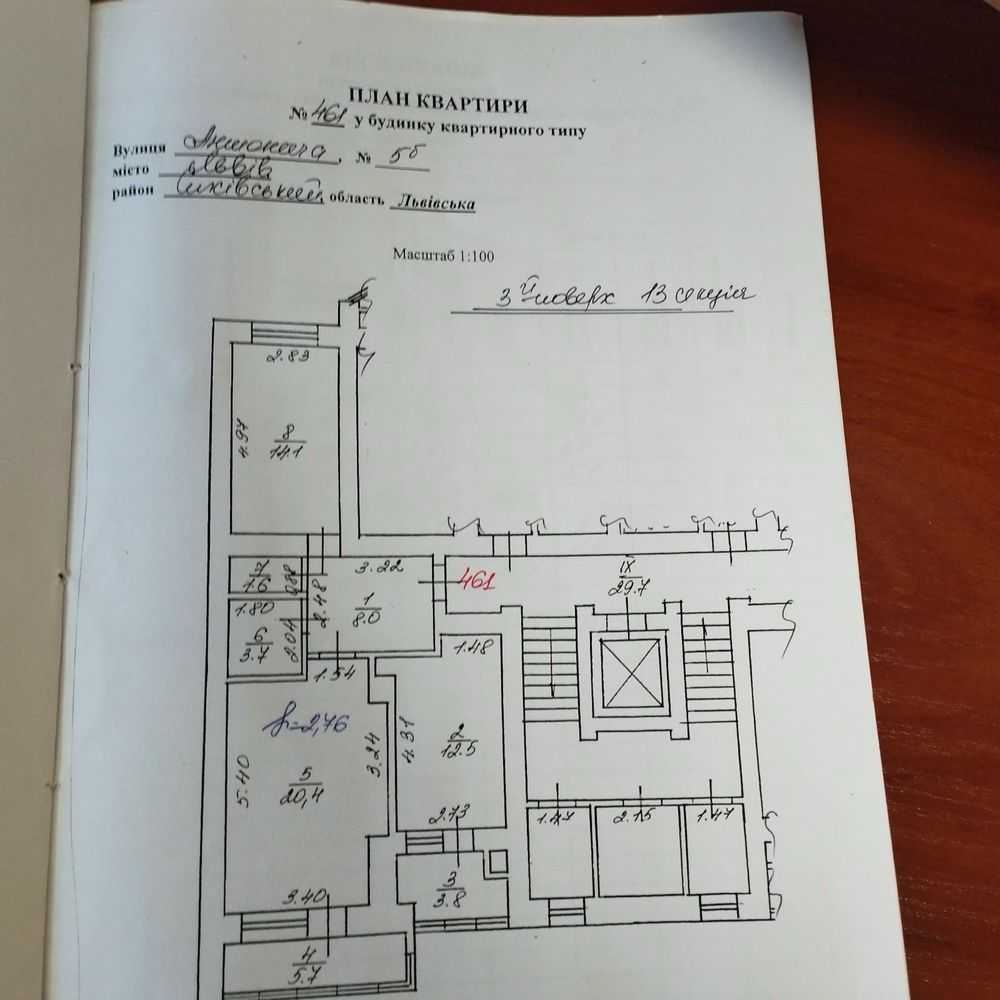 ПЛАН КВАРТИРИ
№ 461 у будинку квартирного типу
Вулиця Антонича, № 5б
місто Львів
район Сихівський, область Львівська
Масштаб 1:100
3й поверх 13 секція
2.83
4.97
8
14.1
7
1.6
0.88
3.22
461
IX
29.7
1.80
2.48
1
8.0
6
3.7
2.04
1.54
1.48
h=2,76
4.31
2
12.5
3.24
5.40
5
20,4
2.73
1.47
2.15
1.47
3
3.8
3.40
4
5.7